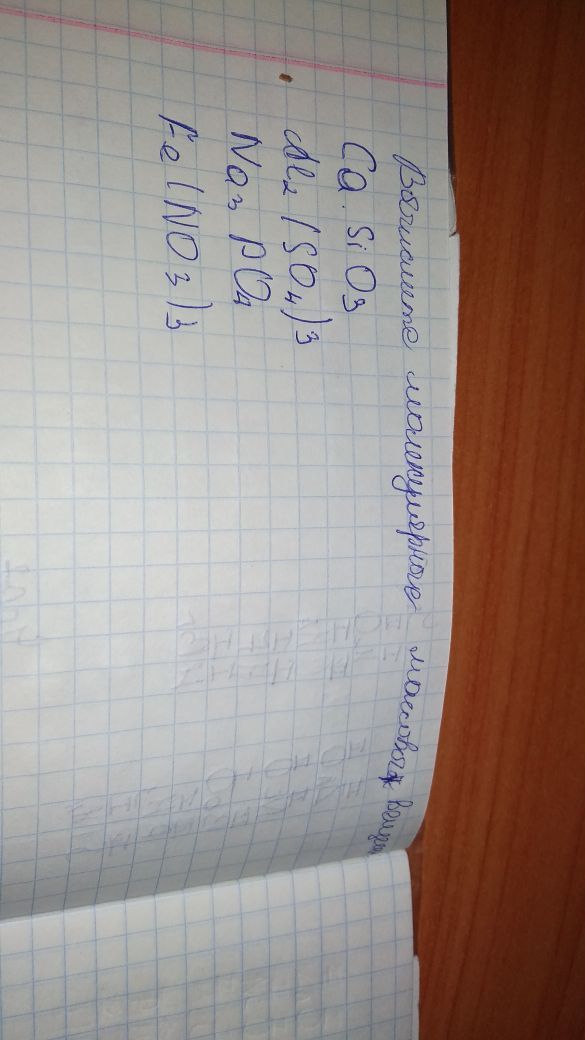 Вычислите молекулярные массовых
Ca SiO3
Al2 (SO4)3
Na3 PO4
Fe (NO3)3